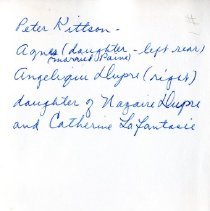 Peter Kittson -
Agnes (daughter - left rear)
(married Paine)
Angelique Dupre (right)
daughter of Nazaire Dupre
and Catherine LaFantasie